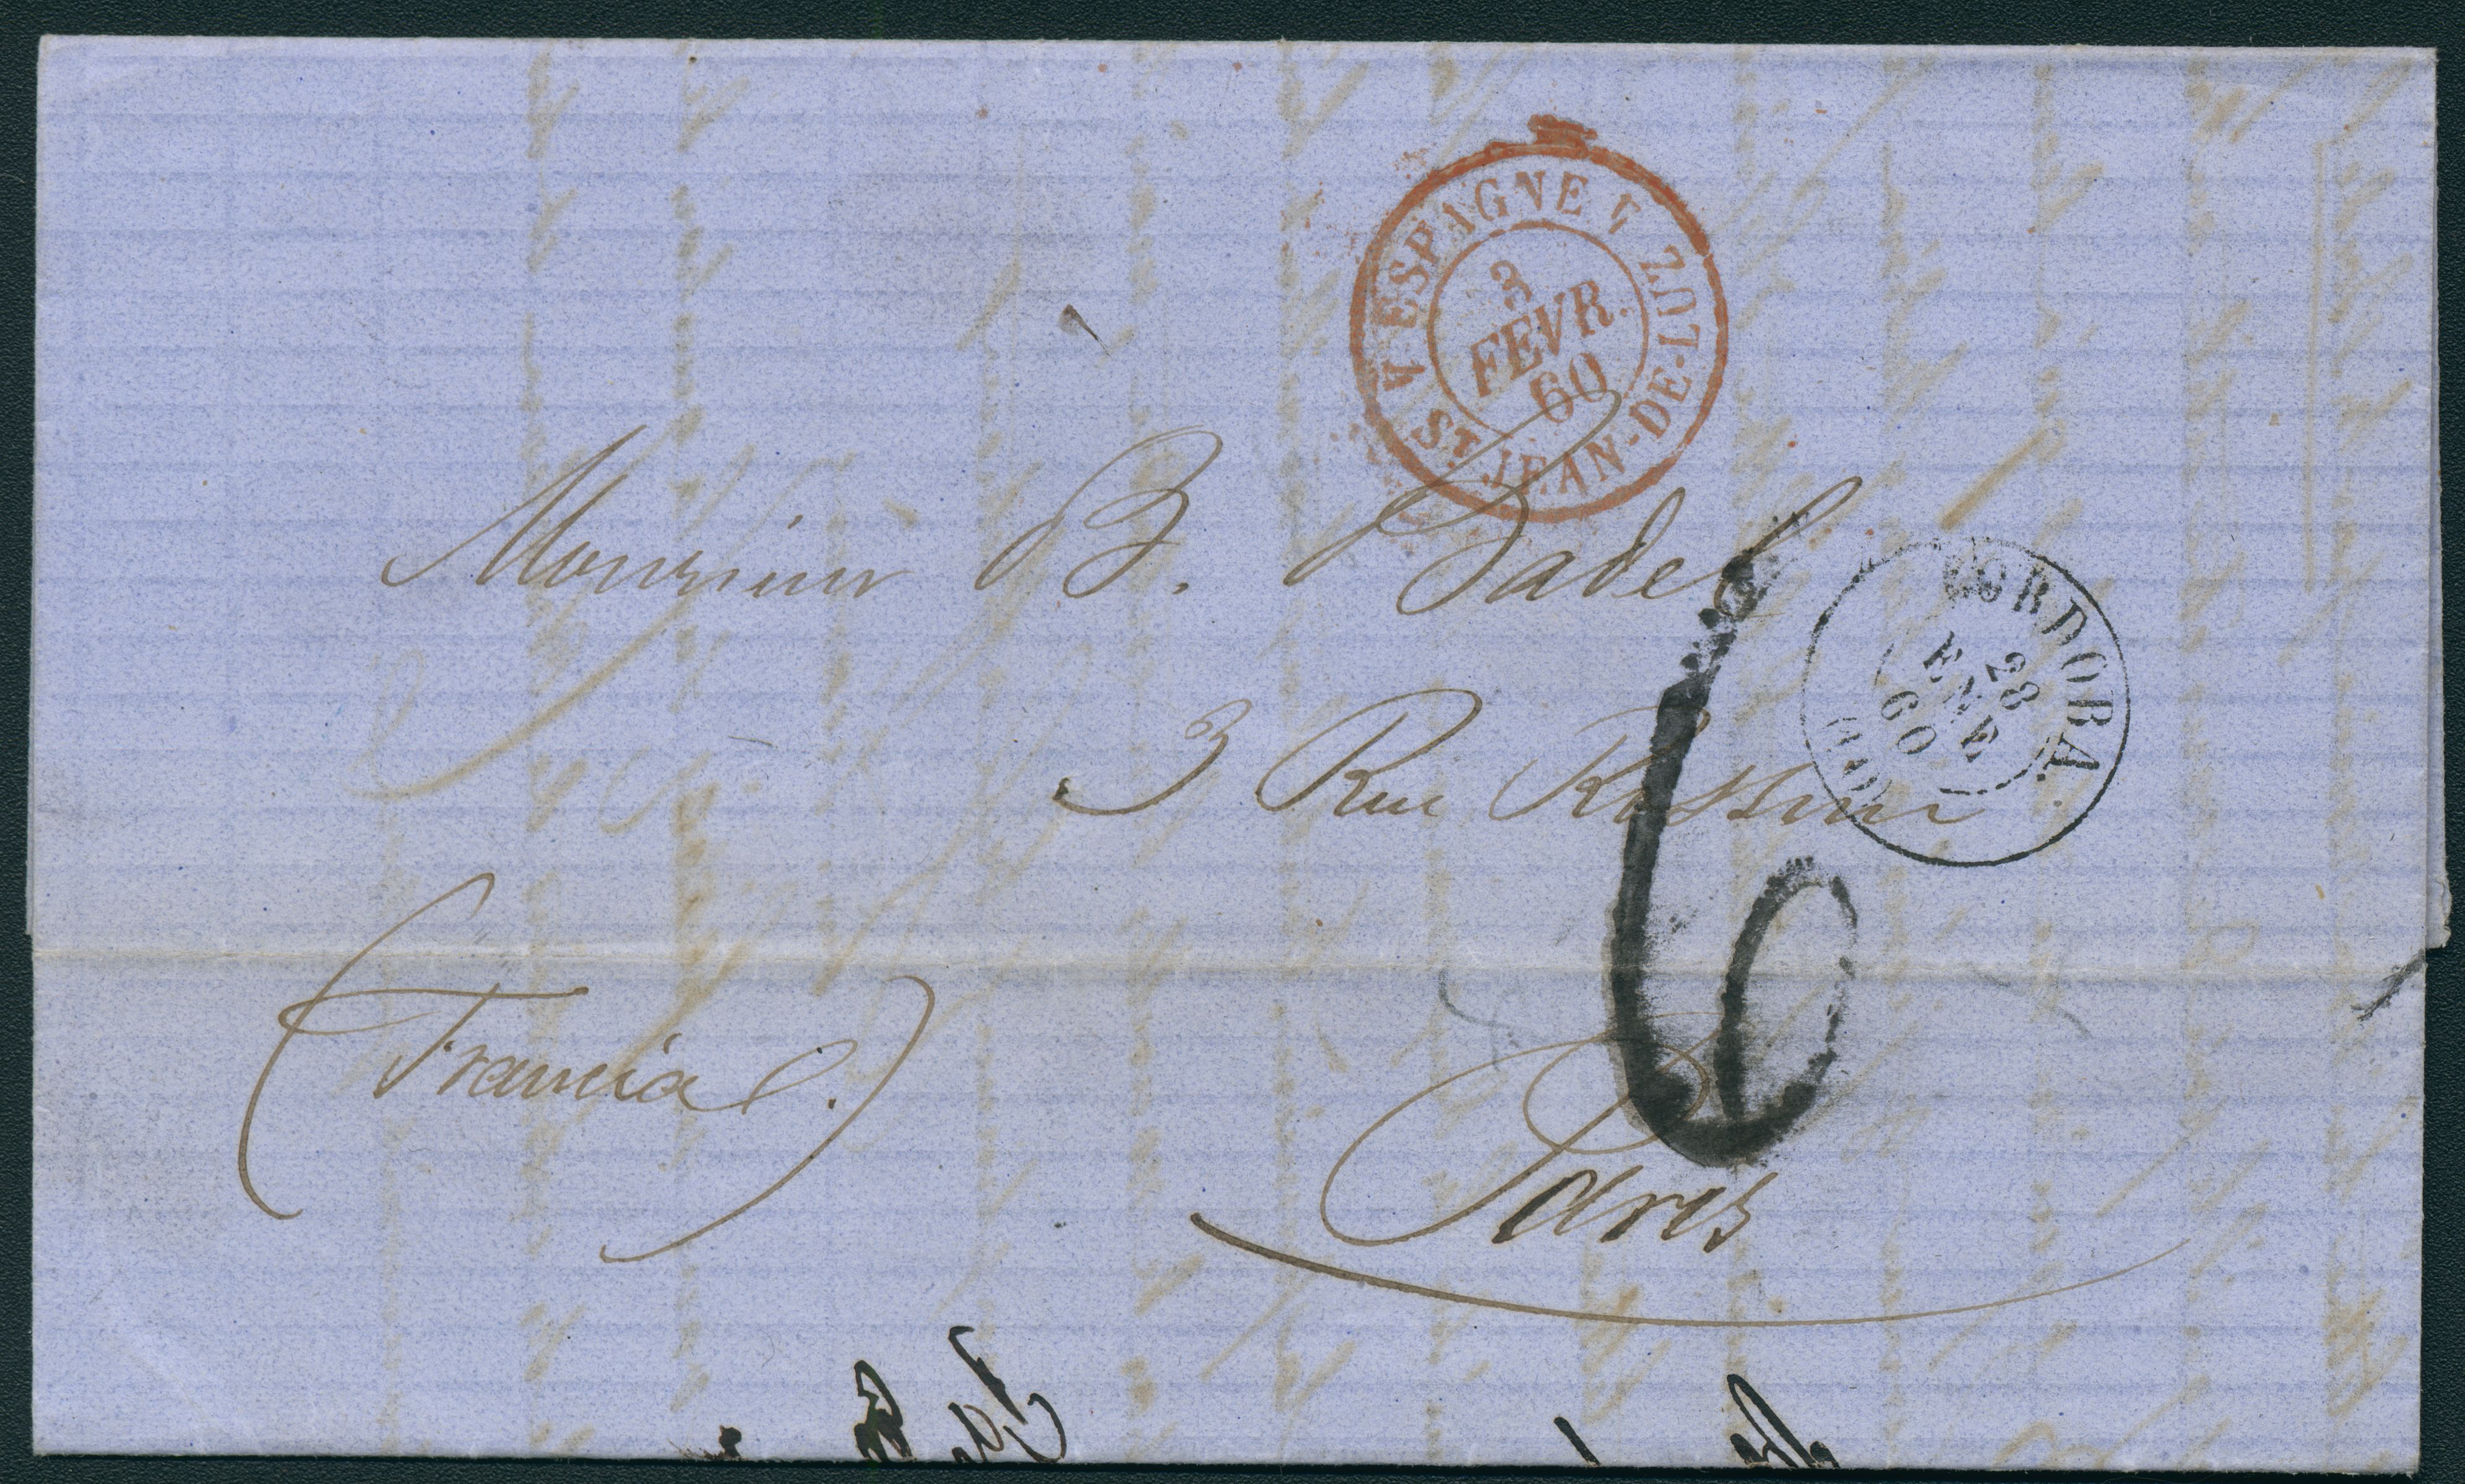 ESPAGNE
ST. JEAN-DE-LUZ
3
FEVR.
60
Monsieur B. Badel
CORDOBA.
28
ENE
60
3 Rue Rossini
6
(Francia.)
Paris